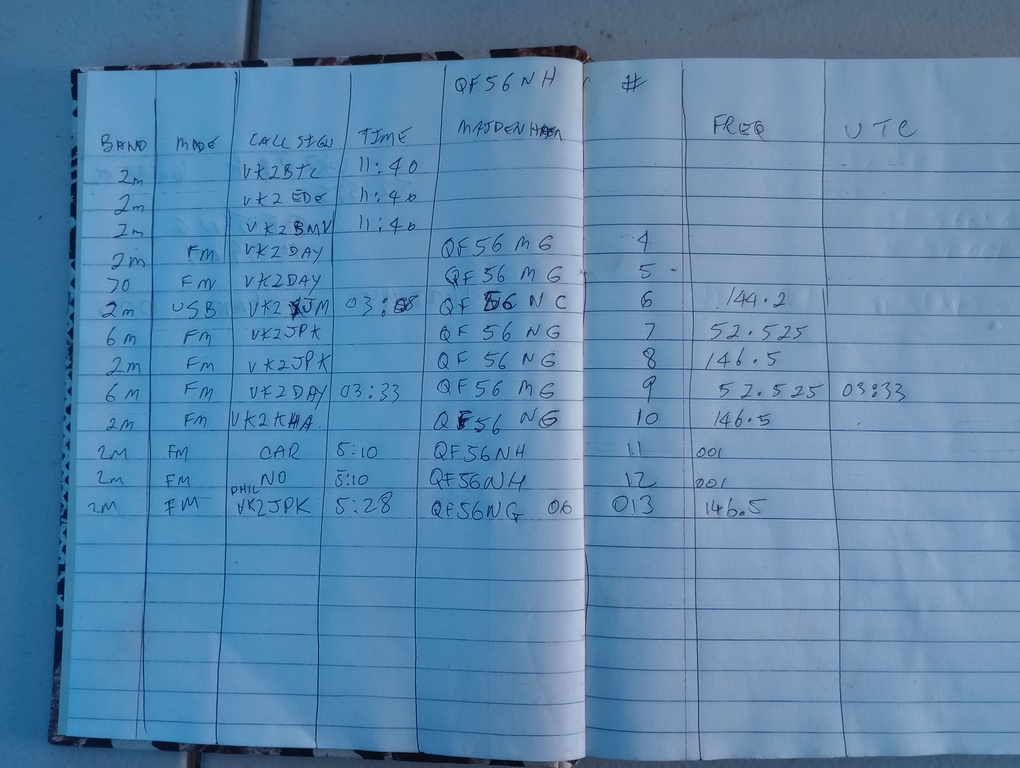 QF56NH #
BAND MODE CALL SIGN TIME MAIDENHEA FREQ UTC
2m VK2BTC 11:40
2m VK2 EDE 11:40
2m VK2BMV 11:40
2m FM VK2DAY QF56 MG 4
70 FM VK2DAY QF56 MG 5
2m USB VK2 JM 03:08 QF 56 NC 6 144.2
6m FM VK2JPK QF 56 NG 7 52.525
2m FM VK2JPK QF 56 NG 8 146.5
6m FM VK2DAY 03:33 QF56 MG 9 52.525 03:33
2m FM VK2KHA QF56 NG 10 146.5
2M FM CAR 5:10 QF56NH 11 001
2m FM NO 5:10 QF56NH 12 001
PHIL
2M FM VK2JPK 5:28 QF56NG 06 013 146.5